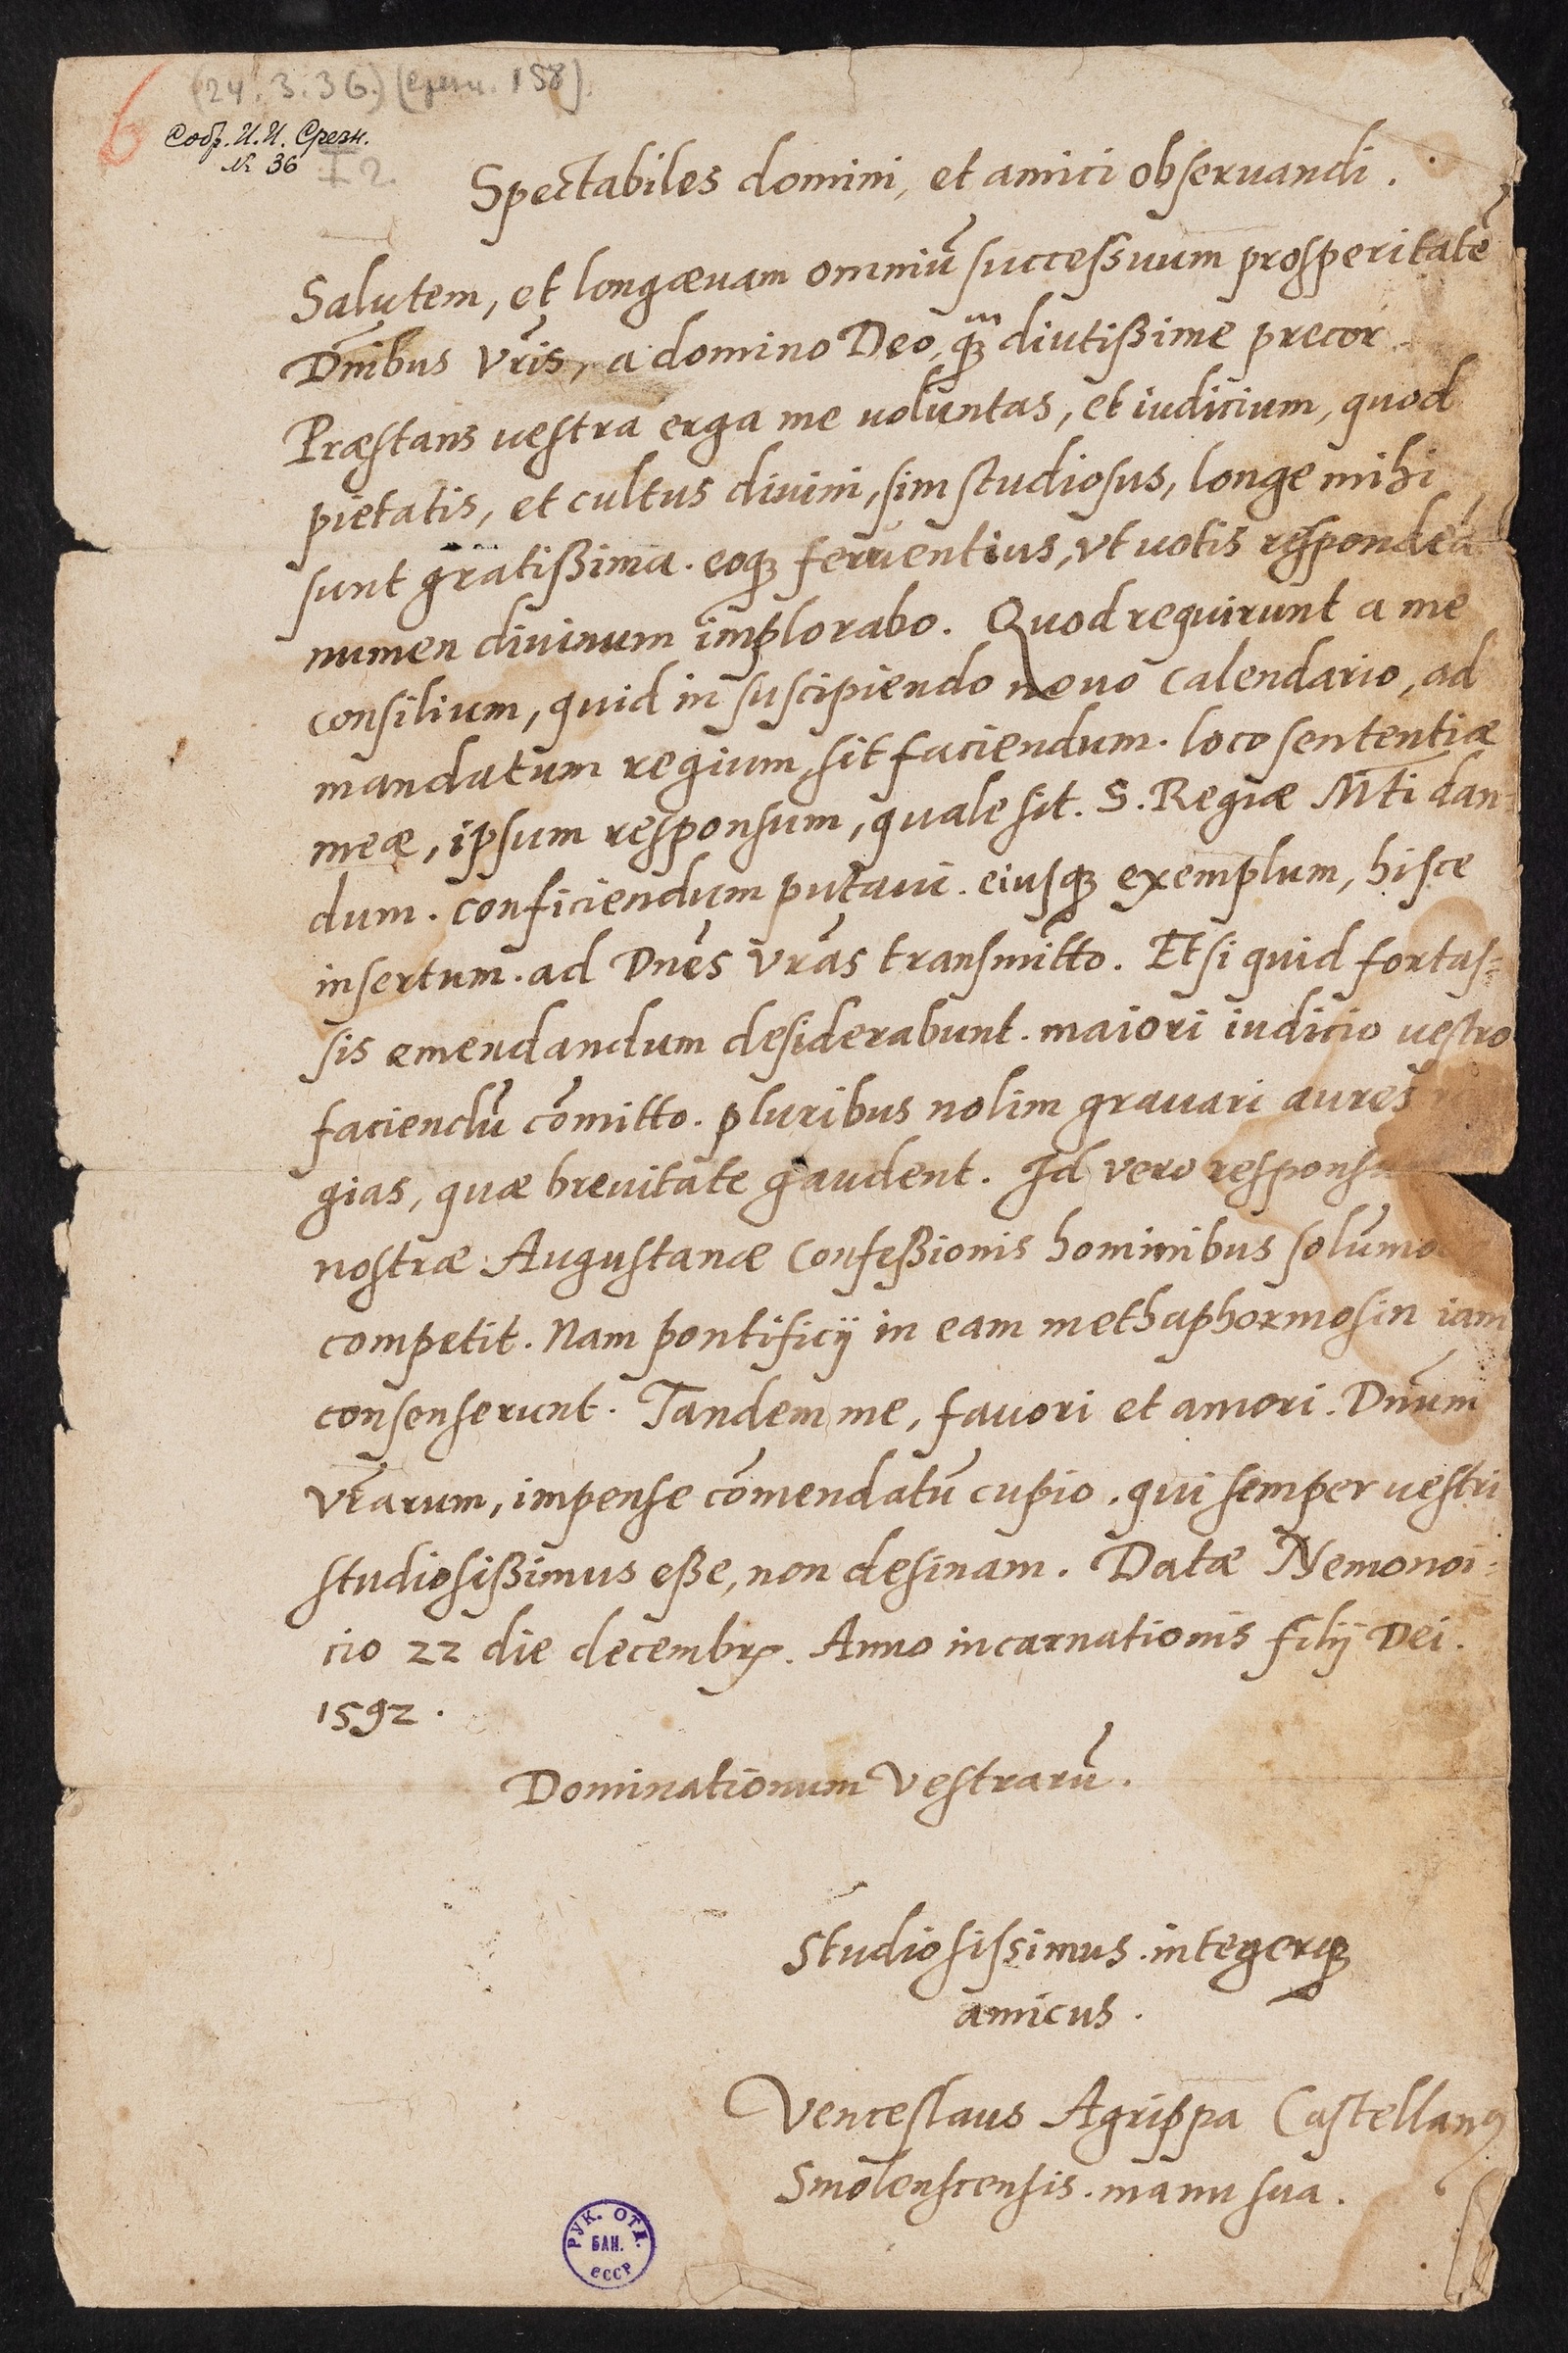 6
(24.3.36.) 158).
Собр. И. И. Срезн.
№ 36
I 2.
Spectabiles domini, et amici obseruandi.
Salutem, et longæuam omniũ successuum prosperitatẽ
Dñibus Vr̃is, a domino Deo, diutißime precor.
Præstans uestra erga me uoluntas, et iudicium, quod
pietatis, et cultus diuini, sim studiosus, longe mihi
sunt gratißima. eoqȝ feruentius, vt uotis respondeã
numen diuinum implorabo. Quod requirunt a me
consilium, quid in suscipiendo nouo Calendario, ad
mandatum regium, sit faciendum. loco sententiæ
meæ, ipsum responsum, quale sit. S. Regiæ Mti dan=
dum. conficiendum putaui. eiusqȝ exemplum, hisce
insertum. ad Dñes Vr̃as transmitto. Et si quid fortas=
sis emendandum desiderabunt. maiori iudicio uestro
faciendũ cõmitto. pluribus nolim grauari aures
gias, quæ breuitate gaudent. Id vero respons
nostræ Augustanæ Confeßionis hominibus solumo
competit. Nam pontificij in eam methaphormosin iam
consenserunt. Tandem me, fauori et amori. Dñum
Vr̃arum, impense cõmendatũ cupio. qui semper uestri
studiosißimus eße, non desinam. Datæ Nemonoi=
cio 22 die decembrꝭ. Anno incarnationis filij Dei.
1592.
Dominationum Vestrarũ.
Studiosissimus. integerqȝ
amicus.
Venceslaus Agrippa Castellanꝰ
Smolenscensis. manu sua.
РУК. ОТД.
БАН.
СССР